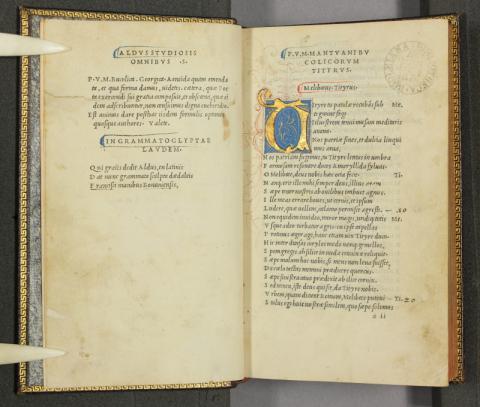 ALDVS STVDIOSIS
OMNIBVS .S.
P. V. M. Bucolica. Georgica. Aeneida quam emenda
ta, et qua forma damus, uidetis. cætera, quæ Poe
ta exercendi sui gratia composuit, et obscœna, quæ ei
dem adscribuntur, non censuimus digna enchiridio.
Est animus dare posthac iisdem formulis optimos
quosque authores. Valete.
IN GRAMMATOGLYPTAE
LAVDEM.
Qui graiis dedit Aldus, en latinis
Dat nunc grammata scalpta dædaleis
Francisci manibus Bononiensis.
P. V. M. MANTVANI BV
COLICORVM
TITYRVS.
Melibœus. Tityrus.
Tityre tu patulæ recubās sub Me.
te gmine fagi
Siluestrem tenui musam meditaris
auena.
Nos patriæ fines, et dulcia linqui
mus arua,
Nos patriam fugimus, tu Tityre lentus in umbra
Formosam resonare doces Amaryllida syluas.
O Melibœe, deus nobis hæc ocia fecit. Ti.
Nanque erit ille mihi semper deus, illius aram
Sæpe tener nostris ab ouilibus imbuet agnus.
Ille meas errare boues, ut cernis, et ipsum
Ludere, quæ uellem, calamo permisit agresti. 10
Non equidem inuideo, miror magis, undique totis Me.
Vsque adeo turbatur agris. en ipse capellas
Protinus æger ago, hanc etiam uix Tityre duco.
Hic inter densas corylos modo nanque gemellos,
Spem gregis ah silice in nuda connixa reliquit.
Sæpe malum hoc nobis, si mens non leua fuisset,
De cœlo tactas memini prædicere quercus.
Sæpe sinistra caua prædixit ab ilice cornix.
Sed tamen, iste deus qui sit, da Tityre nobis.
Vrbem, quam dicunt Romam, Melibœe putaui Ti. 20
Stultus ego huic nostræ similem, quo sæpe solemus
a ii